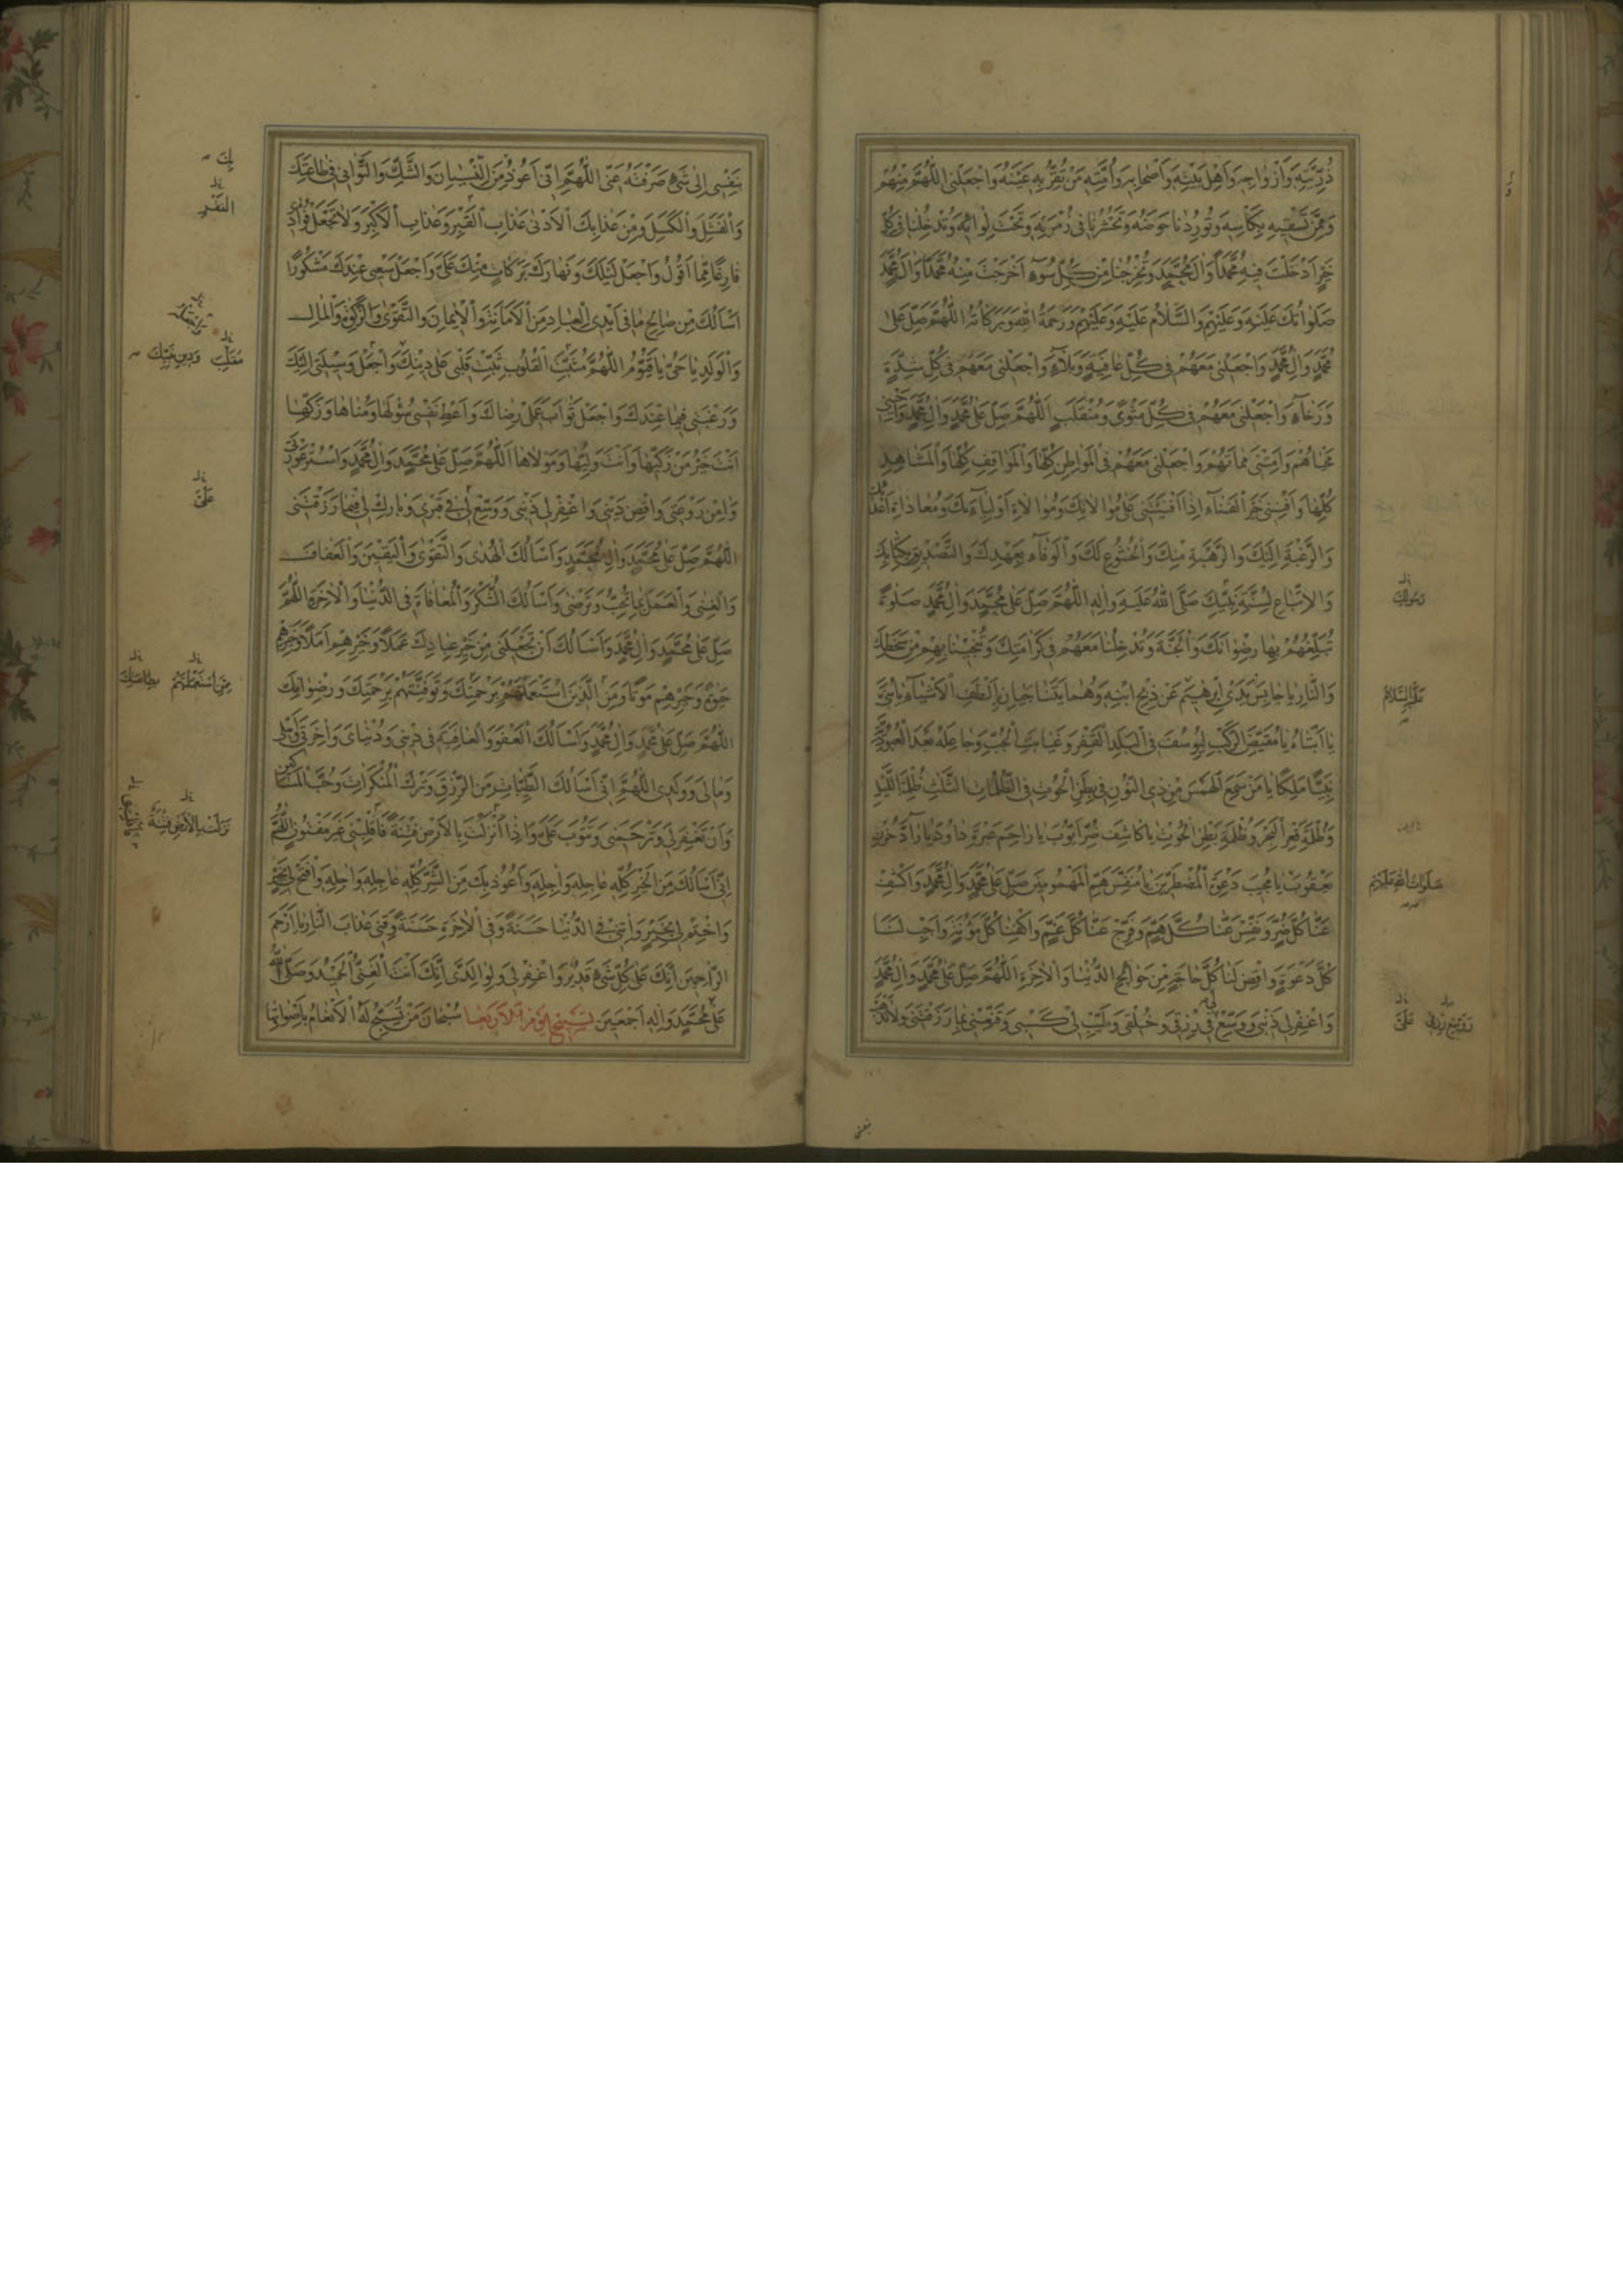 ذُرِّيَّتِهِ وَاَزْواجِهِ وَاَهْلِ بَيْتِهِ وَاَصْحابِهِ وَاُمَّتِهِ مَنْ تُقِرُّ بِهِ عَيْنَهُ وَاجْعَلْنِى اللّٰهُمَّ مِنْهُمْ
وَمِمَّنْ تَسْقِيهِ بِكَاْسِهِ وَتُورِدُنا حَوْضَهُ وَتَحْشُرُنا فى زُمْرَتِهِ وَتَحْتَ لِوائِهِ وَتُدْخِلُنا فى كُلِّ
خَيْرٍ اَدْخَلْتَ فِيهِ مُحَمَّدًا وَاٰلَ مُحَمَّدٍ وَتُخْرِجُنا مِنْ كُلِّ سُوۤءٍ اَخْرَجْتَ مِنْهُ مُحَمَّدًا وَاٰلَ مُحَمَّدٍ
صَلَواتُكَ عَلَيْهِ وَعَلَيْهِمْ وَالسَّلامُ عَلَيْهِ وَعَلَيْهِمْ وَرَحْمَةُ اللهِ وَبَرَكاتُهُ اللّٰهُمَّ صَلِّ عَلىٰ
مُحَمَّدٍ وَاٰلِ مُحَمَّدٍ وَاجْعَلْنى مَعَهُمْ فى كُلِّ عافِيَةٍ وَبَلاۤءٍ وَاجْعَلْنى مَعَهُمْ فى كُلِّ شِدَّةٍ
وَرَخاۤءٍ وَاجْعَلْنى مَعَهُمْ فى كُلِّ مَثْوًى وَمُنْقَلَبٍ اَللّٰهُمَّ صَلِّ عَلىٰ مُحَمَّدٍ وَاٰلِ مُحَمَّدٍ وَاَحْيِنى
مَحْياهُمْ وَاَمِتْنى مَماتَهُمْ وَاجْعَلْنى مَعَهُمْ فِى الْمَواطِنِ كُلِّها وَالْمَواقِفِ كُلِّها وَالْمَشاهِدِ
كُلِّها وَاَفْنِنى خَيْرَ الْفَناۤءِ اِذا اَفْنَيْتَنى عَلىٰ مُوالاتِكَ وَمُوالاةِ اَوْلِياۤئِكَ وَمُعاداةِ اَعْداۤئِكَ
وَالرَّغْبَةِ اِلَيْكَ وَالرَّهْبَةِ مِنْكَ وَالْخُشُوعِ لَكَ وَالْوَفاۤءِ بِعَهْدِكَ وَالتَّصْدِيقِ بِكِتابِكَ
وَالْاِتِّباعِ لِسُنَّةِ نَبِيِّكَ صَلَّى اللهُ عَلَيْهِ وَاٰلِهِ اَللّٰهُمَّ صَلِّ عَلىٰ مُحَمَّدٍ وَاٰلِ مُحَمَّدٍ صَلوةً
رَسُولِكَ
تُبَلِّغُهُمْ بِها رِضْوانَكَ وَالْجَنَّةَ وَتُدْخِلُنا مَعَهُمْ فى كَرامَتِكَ وَتُنْجِينا بِهِمْ مِنْ سَخَطِكَ
وَالنّارِ يا حابِسَ يَدَىْ اِبْرٰهِيمَ عَنْ ذَبْحِ ابْنِهِ وَهُما يَتَناجَيانِ بِاَلْطَفِ الْاَشْياۤءِ يا بُنَىَّ
عَلَيْهِ السَّلامُ
يا اَبَتاهُ يا مُقَيِّضَ الرَّكْبِ لِيُوسُفَ فِى الْبَلَدِ الْقَفْرِ وَغَيابَتِ الْجُبِّ وَجاعِلَهُ بَعْدَ الْعُبُودِيَّةِ
نَبِيًّا مَلِكًا يا مَنْ سَمِعَ الْهَمْسَ مِنْ ذِى النُّونِ فى بَطْنِ الْحُوتِ فِى الظُّلُماتِ الثَّلٰثِ ظُلْمَةِ اللَّيْلِ
وَظُلْمَةِ قَعْرِ الْبَحْرِ وَظُلْمَةِ بَطْنِ الْحُوتِ يا كاشِفَ ضُرِّ اَيُّوبَ يا راحِمَ عَبْرَةِ داوُدَ يا رآدَّ حُزْنِ
يَعْقُوبَ يا مُجِيبَ دَعْوَةِ الْمُضْطَرِّينَ يا مُنَفِّسَ هَمِّ الْمَهْمُومِينَ صَلِّ عَلىٰ مُحَمَّدٍ وَاٰلِ مُحَمَّدٍ وَاكْشِفْ
صَلَواتُ اللهِ عَلَيْهِمْ
عَنّا كُلَّ ضُرٍّ وَنَفِّسْ عَنّا كُلَّ هَمٍّ وَفَرِّجْ عَنّا كُلَّ غَمٍّ وَاكْفِنا كُلَّ مَؤُنَةٍ وَاَجِبْ لَنا
كُلَّ دَعْوَةٍ وَاقْضِ لَنا كُلَّ حاجَةٍ مِنْ حَوائِجِ الدُّنْيا وَالْاٰخِرَةِ اَللّٰهُمَّ صَلِّ عَلىٰ مُحَمَّدٍ وَاٰلِ مُحَمَّدٍ
وَاغْفِرْ لى ذَنْبى وَوَسِّعْ لى فى رِزْقى وَخُلْقى وَطَيِّبْ لى كَسْبى وَقَنِّعْنى بِما رَزَقْتَنى وَلا تَذْهَبْ
رِزْقى عَلَىَّ
بنفسى
بِنَفْسى اِلىٰ شَىْءٍ صَرَفْتَهُ عَنّى اَللّٰهُمَّ اِنّى اَعُوذُ مِنَ النِّسْيانِ وَالشَّكِّ وَالتَّوانى فى طاعَتِكَ
بِكَ
وَالْفَشَلِ وَالْكَسَلِ وَمِنْ عَذابِكَ الْاَدْنىٰ عَذابِ الْقَبْرِ وَعَذابِ الْاَكْبَرِ وَلا تَجْعَلْ فُؤادى
فارِغًا مِمّا اَقُولُ وَاجْعَلْ لَيْلَكَ وَنَهارَكَ بَرَكاتٍ مِنْكَ عَلَىَّ وَاجْعَلْ سَعْيى عِنْدَكَ مَشْكُورًا
اَسْاَلُكَ مِنْ صالِحِ ما فى اَيْدِى الْعِبادِ مِنَ الْاَمانَةِ وَالْاِيمانِ وَالتَّقْوىٰ وَالزَّكٰوةِ وَالْمالِ
وَالْوَلَدِ يا حَىُّ يا قَيُّومُ اَللّٰهُمَّ مُثَبِّتَ الْقُلُوبِ ثَبِّتْ قَلْبى عَلىٰ دِينِكَ وَاجْعَلْ وَسِيلَتى اِلَيْكَ
مُقَلِّبَ وَدِينِ نَبِيِّكَ
وَرَغْبَتى فِيما عِنْدَكَ وَاجْعَلْ ثَوابَ عَمَلى رِضاكَ وَاَعْطِ نَفْسى سُؤْلَها وَمُناها وَزَكِّها
اَنْتَ خَيْرُ مَنْ زَكّٰيها وَاَنْتَ وَلِيُّها وَمَوْلاها اَللّٰهُمَّ صَلِّ عَلىٰ مُحَمَّدٍ وَاٰلِ مُحَمَّدٍ وَاسْتُرْ عَوْرَتى
وَاٰمِنْ رَوْعَتى وَاقْضِ دَيْنى وَاغْفِرْ لى ذَنْبى وَوَسِّعْ لى فى قَبْرى وَبارِكْ لى فِيما رَزَقْتَنى
عَلَىَّ
اَللّٰهُمَّ صَلِّ عَلىٰ مُحَمَّدٍ وَاٰلِ مُحَمَّدٍ وَاَسْاَلُكَ الْهُدىٰ وَالتَّقْوىٰ وَالْيَقِينَ وَالْعَفافَ
وَالْغِنىٰ وَالْعَمَلَ بِما تُحِبُّ وَتَرْضىٰ وَاَسْاَلُكَ الشُّكْرَ وَالْمُعافاةَ فِى الدُّنْيا وَالْاٰخِرَةِ اَللّٰهُمَّ
صَلِّ عَلىٰ مُحَمَّدٍ وَاٰلِ مُحَمَّدٍ وَاَسْاَلُكَ اَنْ تَجْعَلَنى مِنْ خَيْرِ عِبادِكَ عَمَلًا وَخَيْرِهِمْ اَمَلًا وَخَيْرِهِمْ
حَيٰوةً وَخَيْرِهِمْ مَوْتًا وَمِنَ الَّذِينَ اسْتَعْمَلْتَهُمْ بِرَحْمَتِكَ وَتَوَفَّيْتَهُمْ بِرَحْمَتِكَ وَرِضْوانِكَ
مِمَّنِ اسْتَعْمَلْتَهُمْ بِطاعَتِكَ
اَللّٰهُمَّ صَلِّ عَلىٰ مُحَمَّدٍ وَاٰلِ مُحَمَّدٍ وَاَسْاَلُكَ الْعَفْوَ وَالْعافِيَةَ فى دِينى وَدُنْياىَ وَاٰخِرَتى وَاَهْلى
وَمالى وَوَلَدى اَللّٰهُمَّ اِنّى اَسْاَلُكَ الطَّيِّباتِ مِنَ الرِّزْقِ وَتَرْكَ الْمُنْكَراتِ وَحُبَّ الْمَساكِينِ
وَاَنْ تَغْفِرَ لى وَتَرْحَمَنى وَتَتُوبَ عَلَىَّ وَاِذا اَنْزَلْتَ بِالْاَرْضِ فِتْنَةً فَاقْلِبْنى غَيْرَ مَفْتُونٍ اَللّٰهُمَّ
نَزَلَتْ بِالْاَرْضِ فِتْنَةٌ
اِنّى اَسْاَلُكَ مِنَ الْخَيْرِ كُلِّهِ عاجِلِهِ وَاٰجِلِهِ وَاَعُوذُ بِكَ مِنَ الشَّرِّ كُلِّهِ عاجِلِهِ وَاٰجِلِهِ وَافْتَحْ لى بِخَيْرٍ
وَاخْتِمْ لى بِخَيْرٍ وَاٰتِنى فِى الدُّنْيا حَسَنَةً وَفِى الْاٰخِرَةِ حَسَنَةً وَقِنى عَذابَ النّارِ يا اَرْحَمَ
الرّاحِمِينَ اِنَّكَ عَلىٰ كُلِّ شَىْءٍ قَدِيرٌ وَاغْفِرْ لى وَلِوالِدَىَّ اِنَّكَ اَنْتَ الْغَنِىُّ الْحَمِيدُ وَصَلَّى اللهُ
عَلىٰ مُحَمَّدٍ وَاٰلِهِ اَجْمَعِينَ تَسْبِيحُ يَوْمِ الْاَرْبَعا سُبْحانَ مَنْ تُسَبِّحُ لَهُ الْاَنْعامُ بِاَصْواتِها